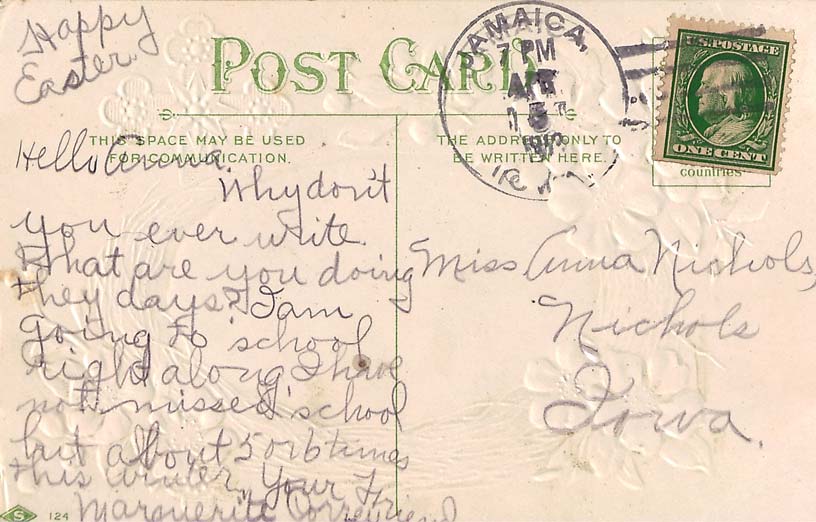 Happy
Easter.
POST CARD
THIS SPACE MAY BE USED
FOR COMMUNICATION.
THE ADDRESS ONLY TO
BE WRITTEN HERE.
JAMAICA,
7 PM
APR
U.S. POSTAGE
ONE CENT
countries
Hello Anna.
Why don't
you ever write.
What are you doing
they days? I am
going to school
right along I have
not missed school
but about 5 or 6 times
this winter. Your Friend
Marguerite
Miss Anna Nichols,
Nichols
Iowa.
S 124